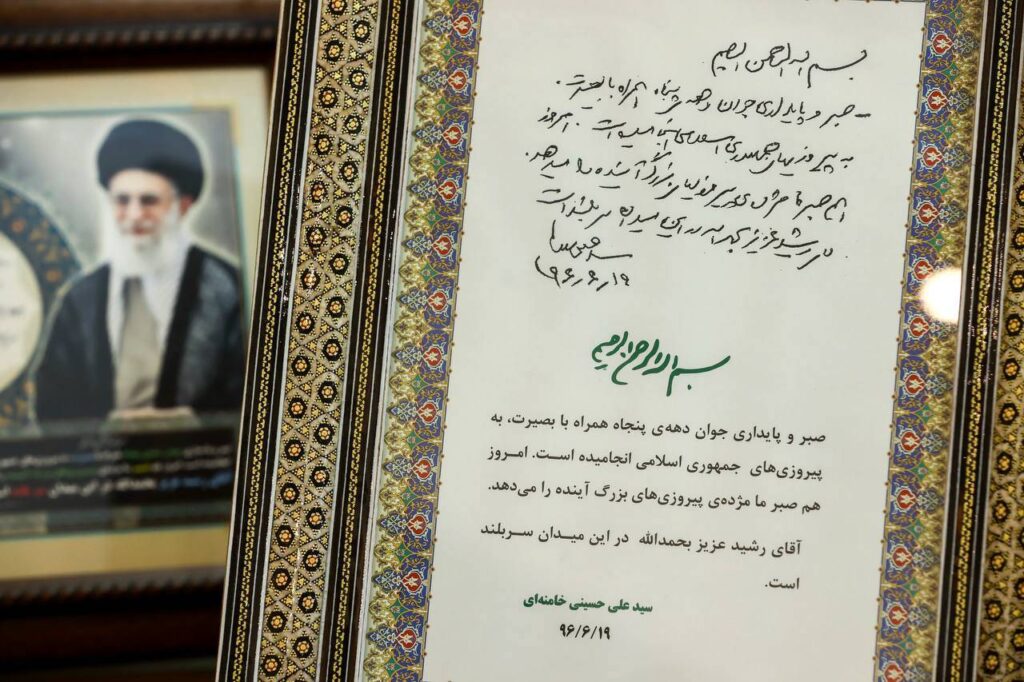 بسم الله الرحمن الرحیم
صبر و پایداری جوان دهه‌ی پنجاه همراه با بصیرت،
به پیروزیهای جمهوری اسلامی انجامیده است. امروز
هم صبر ما مژده‌ی پیروزیهای بزرگ آینده را میدهد.
آقای رشید عزیز بحمدالله در این میدان سربلند است
۹۶/۶/۱۹
بسم الله الرحمن الرحیم
صبر و پایداری جوان دهه‌ی پنجاه همراه با بصیرت، به
پیروزی‌های جمهوری اسلامی انجامیده است. امروز
هم صبر ما مژده‌ی پیروزی‌های بزرگ آینده را می‌دهد.
آقای رشید عزیز بحمدالله در این میدان سربلند
است.
سید علی حسینی خامنه‌ای
۹۶/۶/۱۹